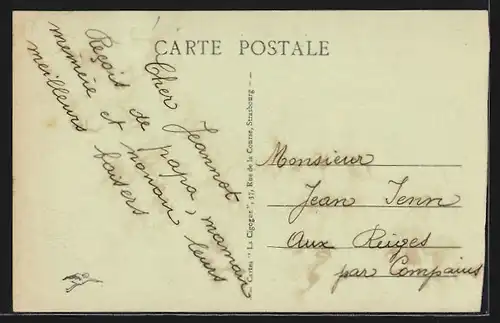 CARTE POSTALE
Cher Jeannot
Reçois de papa, maman
memeie et nonau leurs
meilleurs baisers
Cartes "La Cigogne", 37, Rue de la Course, Strasbourg
Monsieur
Jean Jenn
Aux Reiges
par Compains